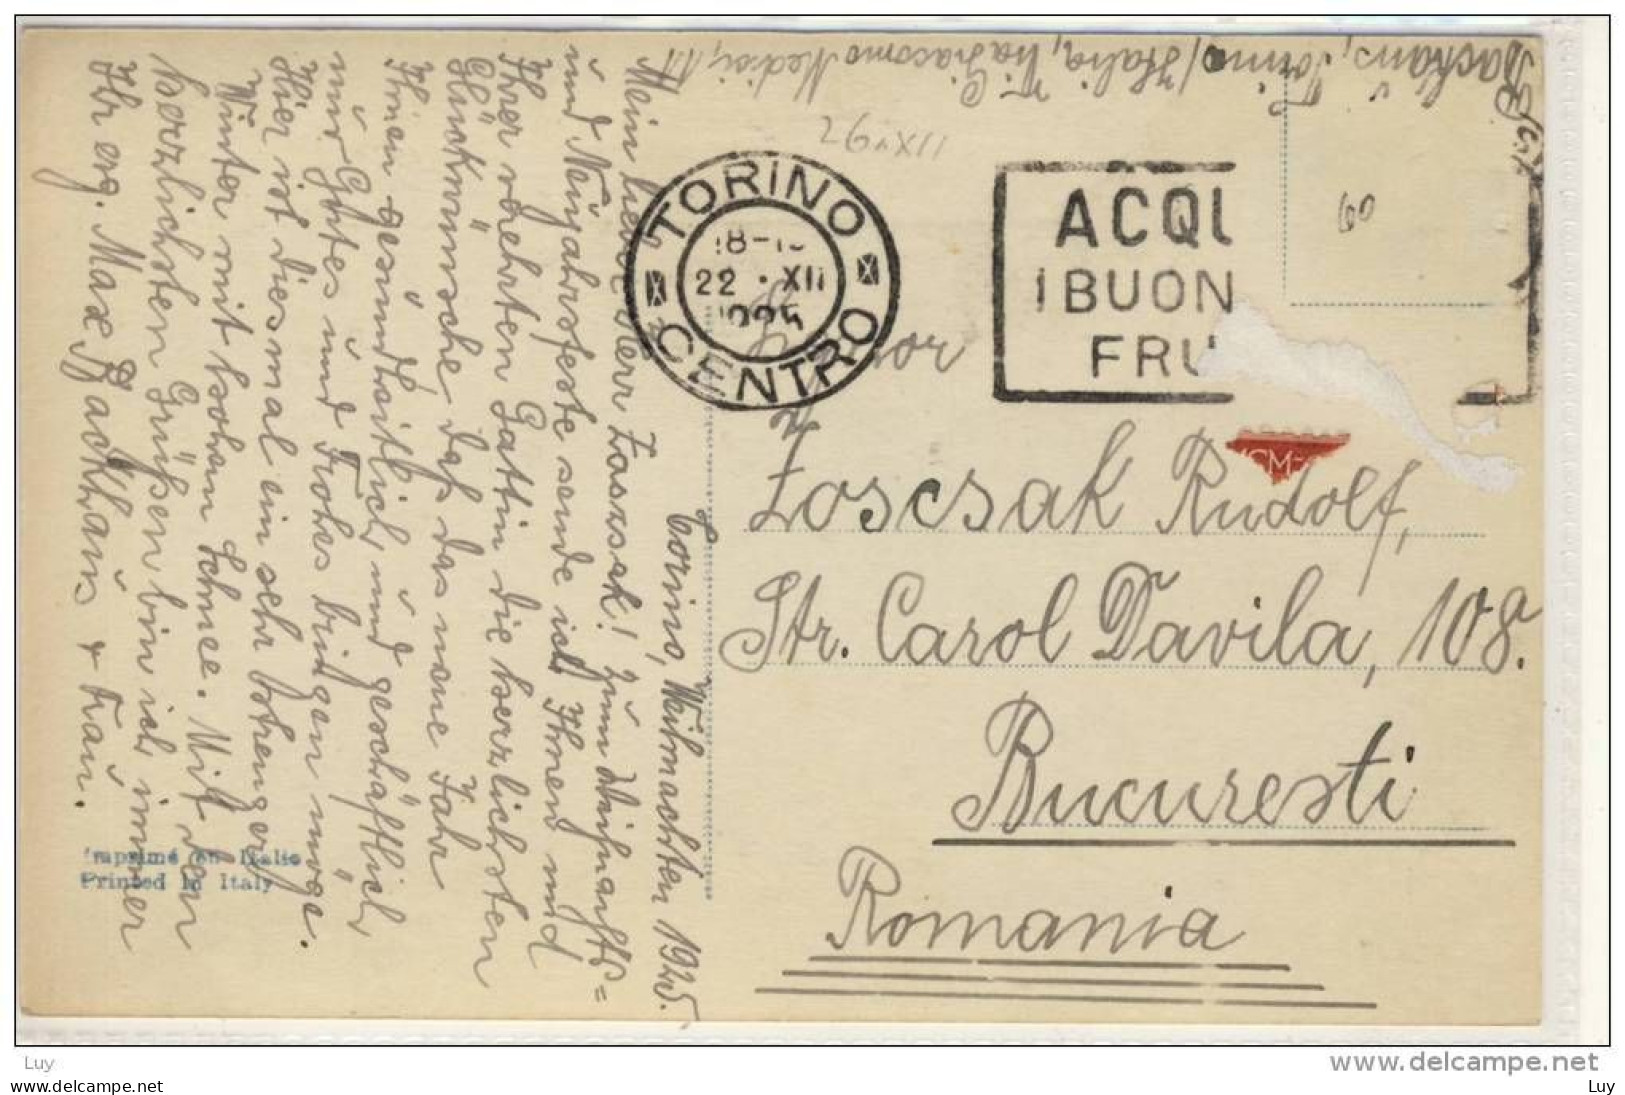 Torino, Weihnachten 1925.
Mein lieber Herr Zoscsak! Zum Weihnachts=
und Neujahrsfeste sende ich Ihnen und
Ihrer verehrten Gattin die herzlichsten
Glückwünsche dass das neue Jahr
Ihnen gesundheitlich und geschäftlich
nur Gutes und Frohes bringen möge.
Hier ist diesmal ein sehr strenger
Winter mit hohem Schnee. Mit den
herzlichsten Grüßen bin ich immer
Ihr erg. Max Backhaus & Frau.
Imprimé en Italie
Printed in Italy
Backhaus, Torino/Italia, Via Giacomo Medici,
TORINO
18-1
22 · XII
1925
CENTRO
ACQU
I BUON
FRU
60
Zoscsak Rudolf,
Str. Carol Davila, 108.
Bucuresti
Romania
Luy
delcampe.net
Luy
Luy